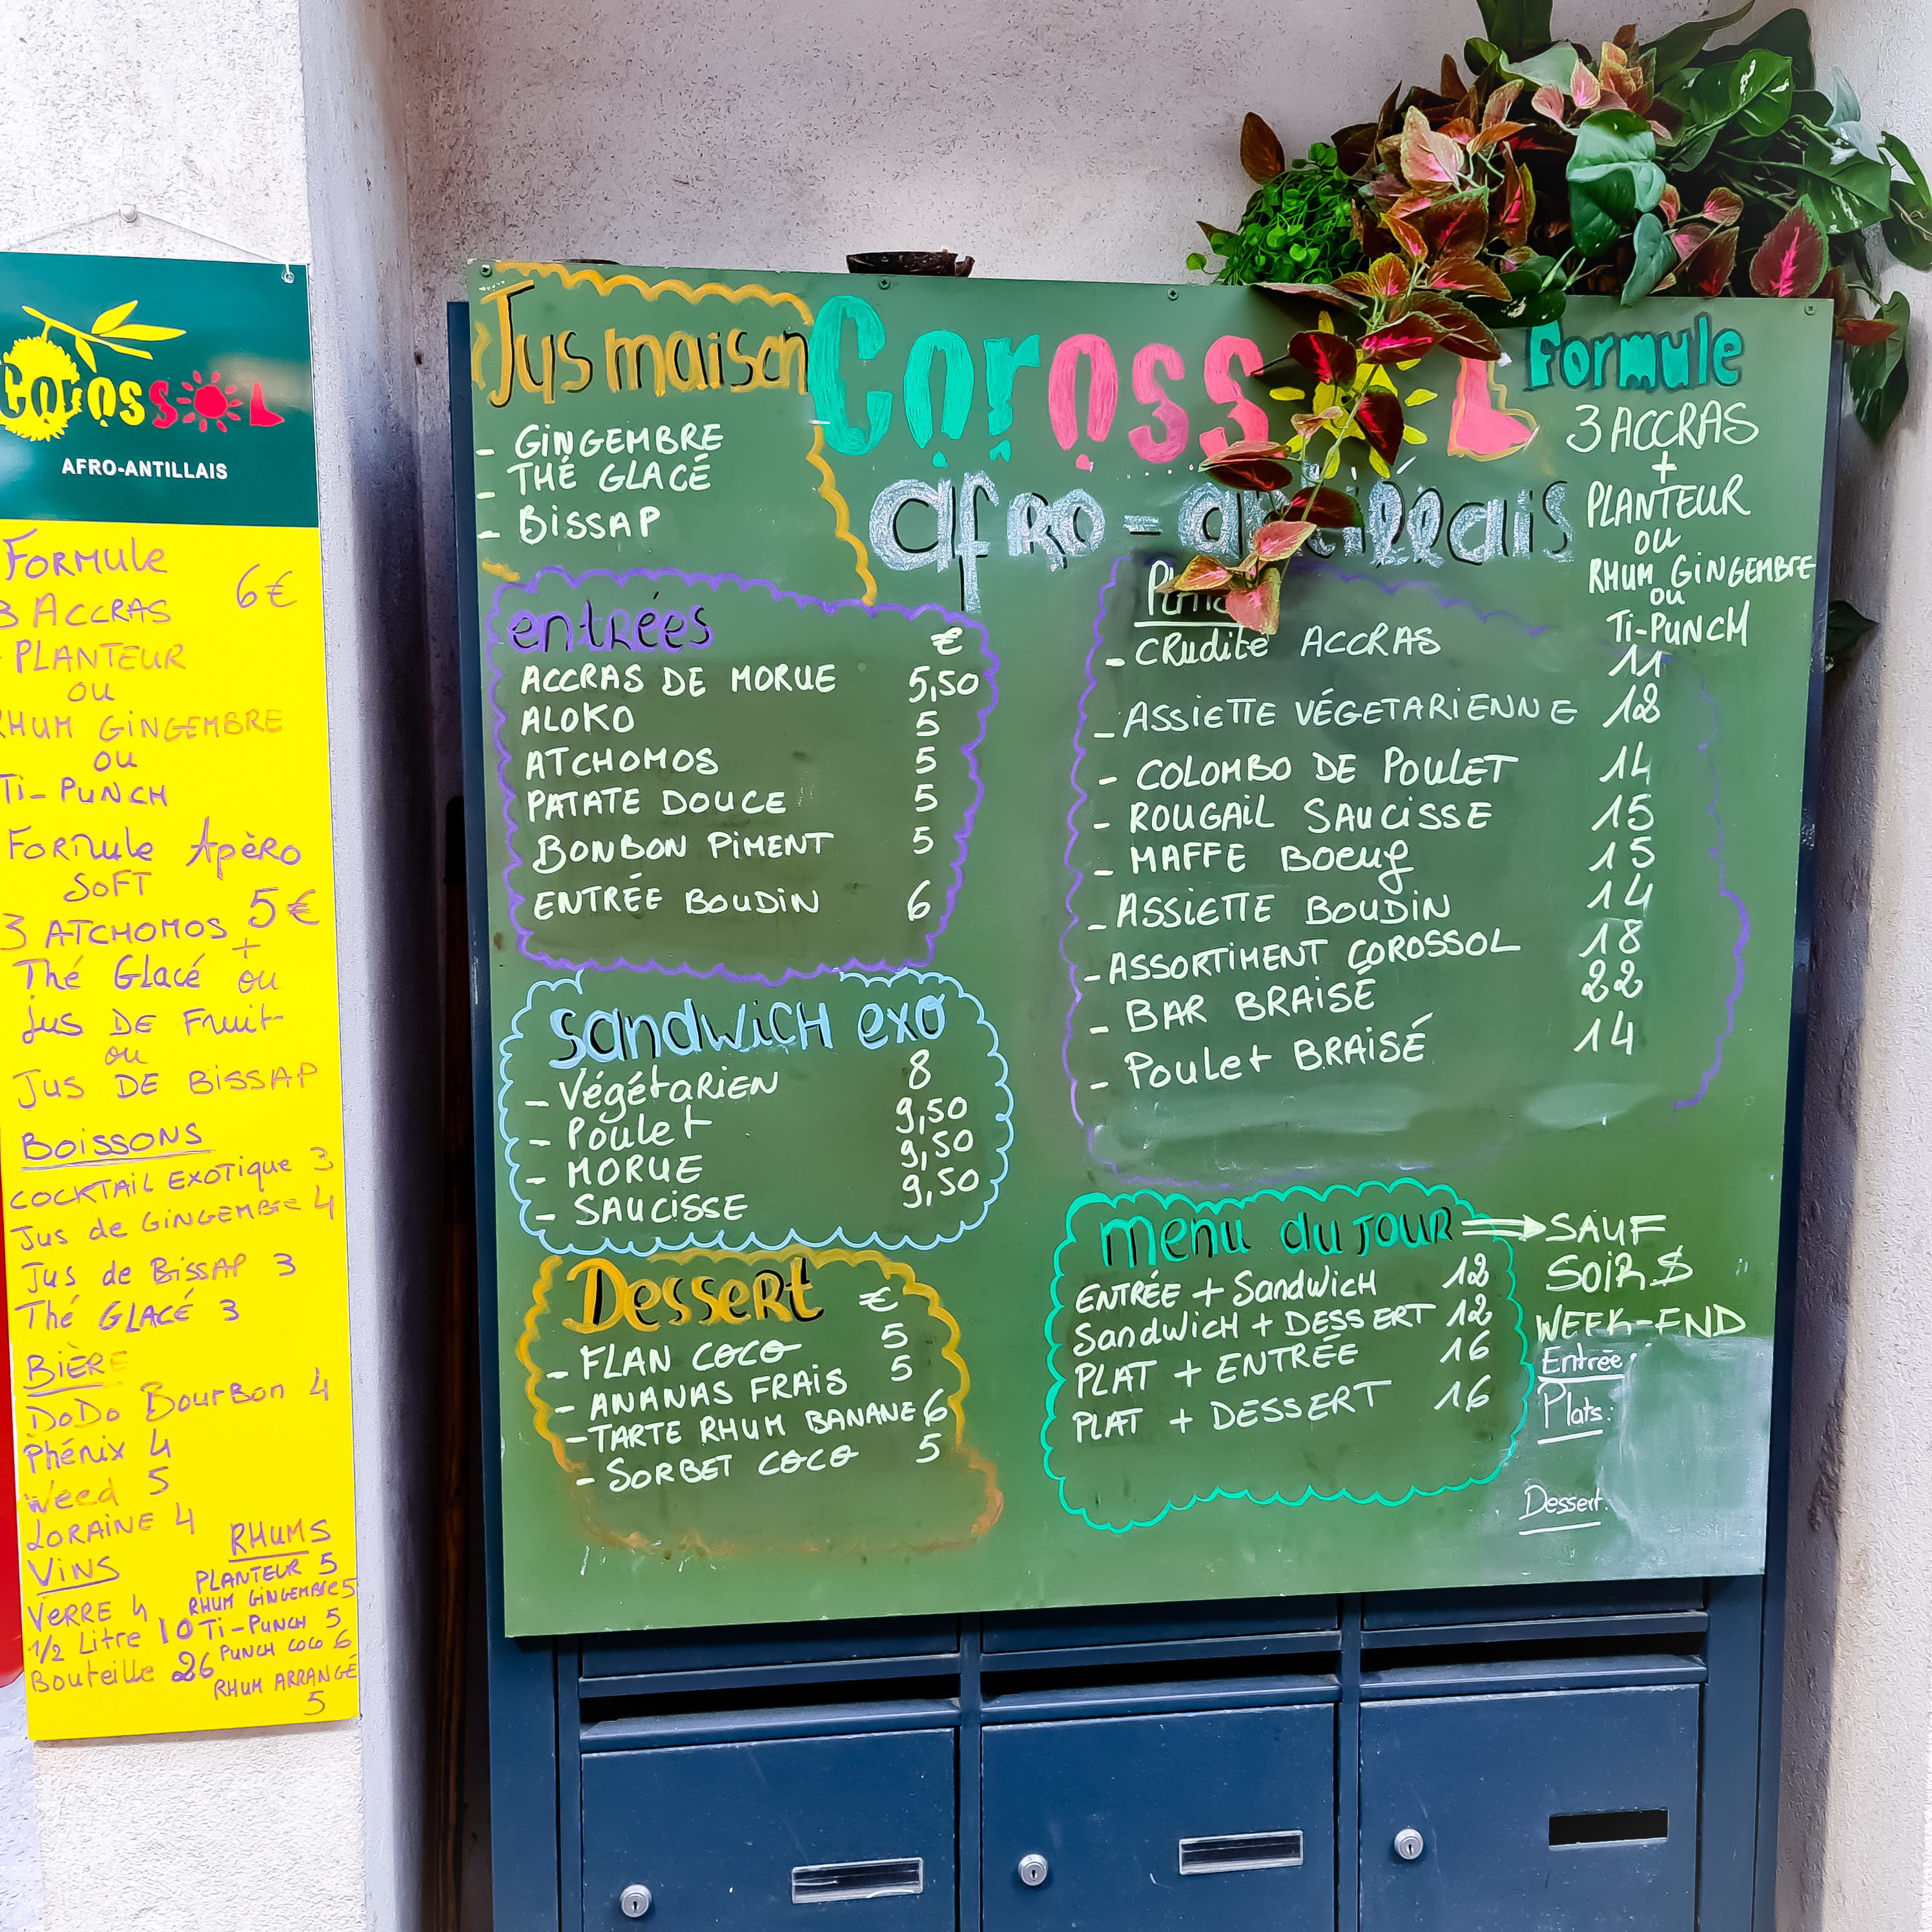 Corossol
AFRO-ANTILLAIS
FORMULE
6€
3 ACCRAS
PLANTEUR
ou
RHUM GINGEMBRE
ou
Ti-PUNCH
FORMULE Apèro
SOFT
5€
3 ATCHOMOS
+
Thé Glacé ou
jus DE Fruit
ou
Jus DE BISSAP
BOISSONS
COCKTAIL EXOTIQUE 3
Jus de GINGEMBRE 4
Jus de BISSAP 3
Thé GLACÉ 3
BIÈRE
DODO BOURBON 4
Phénix 4
Weed 5
LORAINE 4
VINS
VERRE 4
1/2 Litre 10
Bouteille 26
RHUMS
PLANTEUR 5
RHUM GINGEMBRE 5
Ti-PUNCH 5
PUNCH COCO 6
RHUM ARRANGÉ
5
Jus maison
- GINGEMBRE
- THÉ GLACÉ
- BISSAP
COROSS L
afro-antillais
Formule
3 ACCRAS
+
PLANTEUR
ou
RHUM GINGEMBRE
ou
Ti-PUNCH
entrées €
ACCRAS DE MORUE 5,50
ALOKO 5
ATCHOMOS 5
PATATE DOUCE 5
BONBON PIMENT 5
ENTRÉE BOUDIN 6
Sandwich exo
- Végétarien 8
- Poulet 9,50
- MORUE 9,50
- SAUCISSE 9,50
Dessert €
- FLAN COCO 5
- ANANAS FRAIS 5
- TARTE RHUM BANANE 6
- SORBET COCO 5
- CRudité ACCRAS 11
- ASSIETTE VÉGETARIENNE 12
- COLOMBO DE POULET 14
- ROUGAIL SAUCISSE 15
- MAFFE BOEUF 15
- ASSIETTE BOUDIN 14
- ASSORTIMENT COROSSOL 18
- BAR BRAISÉ 22
- Poulet BRAISÉ 14
menu du JOUR ⇒ SAUF
SOIR $
WEEK-END
ENTRÉE + Sandwich 12
Sandwich + DESSERT 12
PLAT + ENTRÉE 16
PLAT + DESSERT 16
Entrée:
Plats:
Dessert: